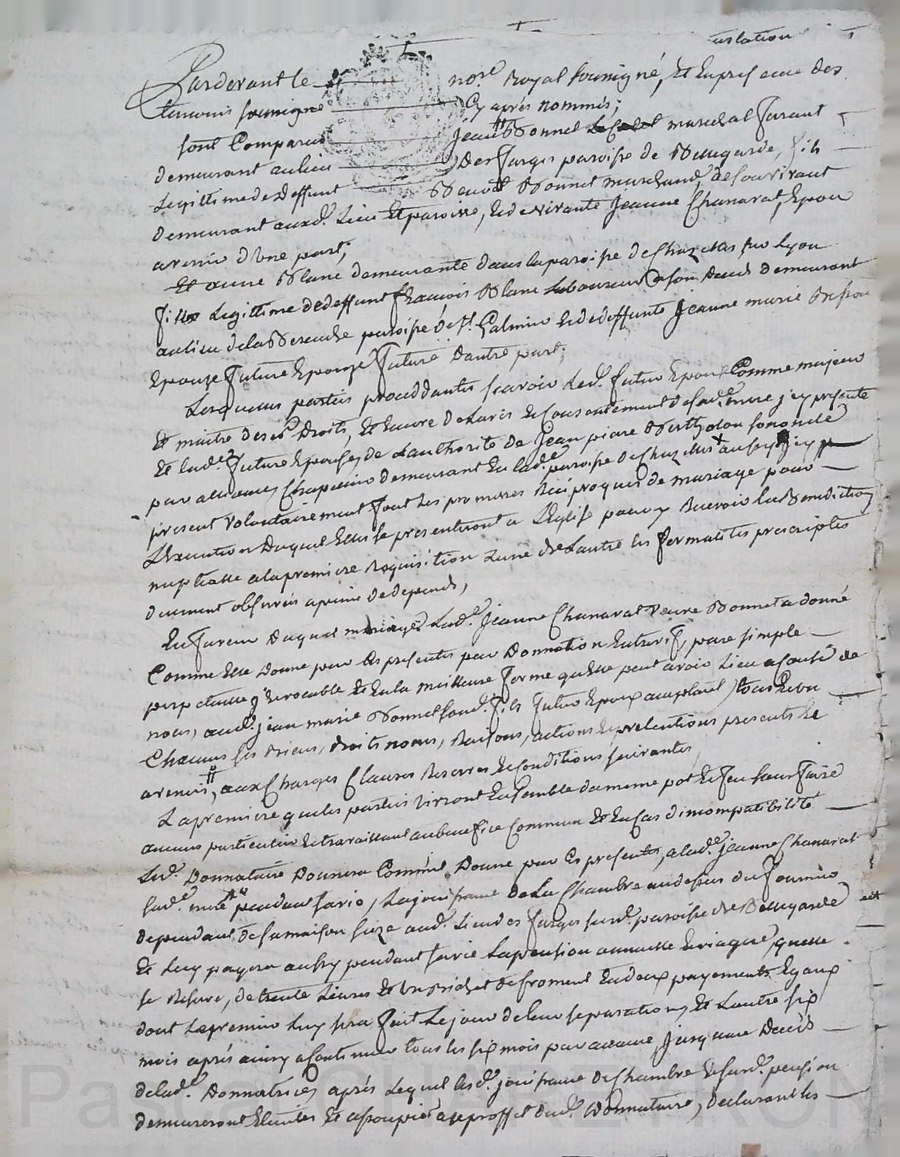 Pardevant le nore Royal sousigné, Et en presence des
temoins soussignes Cy après nommés;
sont Comparus Jean Bonnet mareschal farant
demeurant au lieu Des farges paroisse de Bellegarde, fils
Legitime de deffunt Benoit Bonnet marchand, de son vivant
demeurant auxd. Lieu Et paroisse, Et de vivante Jeanne Chanavat, Epoux
avenir d'Une part;
Et anne Blanc demeurante dans la paroisse de Chazelles sur Lyon
fille Legittime de deffunt françois Blanc Laboureur a son Deces demeurant
au lieu de la paroisse de St. Galmier Et de deffunte Jeanne marie
Epouze future Epouze future D'autre part;
Lesquelles parties proceddantes scavoir Led. futur Epoux Comme majeur
Et maitre de ses Droits, Et Encore de L'avis Et Consentement de sad. mere icy presente
Et lad. future Epouse de L'authorité de Jean piere Berthollon son oncle
par alliance, Chapelier demeurant En lad. paroisse de Chazelles aussy icy
present volontairement font Les promesses Reciproques de mariage pour
L'Execution Duquel Elles se presenteront a L'Eglise pour y Recevoir la Benediction
nuptialle a la premiere Requisition L'une de L'autre les formalités prescriptes
duement observées a peine de depends,
En faveur Duquel mariage Lad. Jeanne Chanavat veuve Bonnet a donné
Comme Elle Donne par Ces presentes par Donnation Entre vifs, pure simple
perpetuelle irrevocable Et En la meilleure forme qu'elle peut avoir Lieu a Coutté de
nous, aud. jean marie Bonnet sond. fils futur Epoux acceptant tous Et un
Chacuns ses Biens, droits noms, Raisons, actions Et pretentions presents Et
avenir, aux Charges Clauses Reserves Et Conditions suivantes
La premiere que les parties vivront Ensemble du meme pot Et feu sans faire
aucun particulier Et travaillant au benefice Commun Et En Cas d'incompatibilité
Led. Donnataire Donnera Comme il Donne par Ces presentes, a lad. jeanne Chanavat
sad. mere pendant sa vie, La jouissance de La Chambre au dessus du fournier
dependant de sa maison size aud. Lieu des farges susd. paroisse de Bellegarde
Et Luy payera aussy pendant sa vie La pension annuelle Et viagere, quelle
se Reserve, de trente Livres Et un bichet de froment En deux payements Egaux
dont Le premier Luy sera fait Le jour de leur separation, Et L'autre six
mois après ainsy a Continuer tous les six mois par avance Jusqu'au Decès
de lad. Donnatrice, après Lequel lesd. jouissance de Chambre Et susd. pension
demeureront Eteintes Et assoupies au proffit dud. Donnataire, declarant les